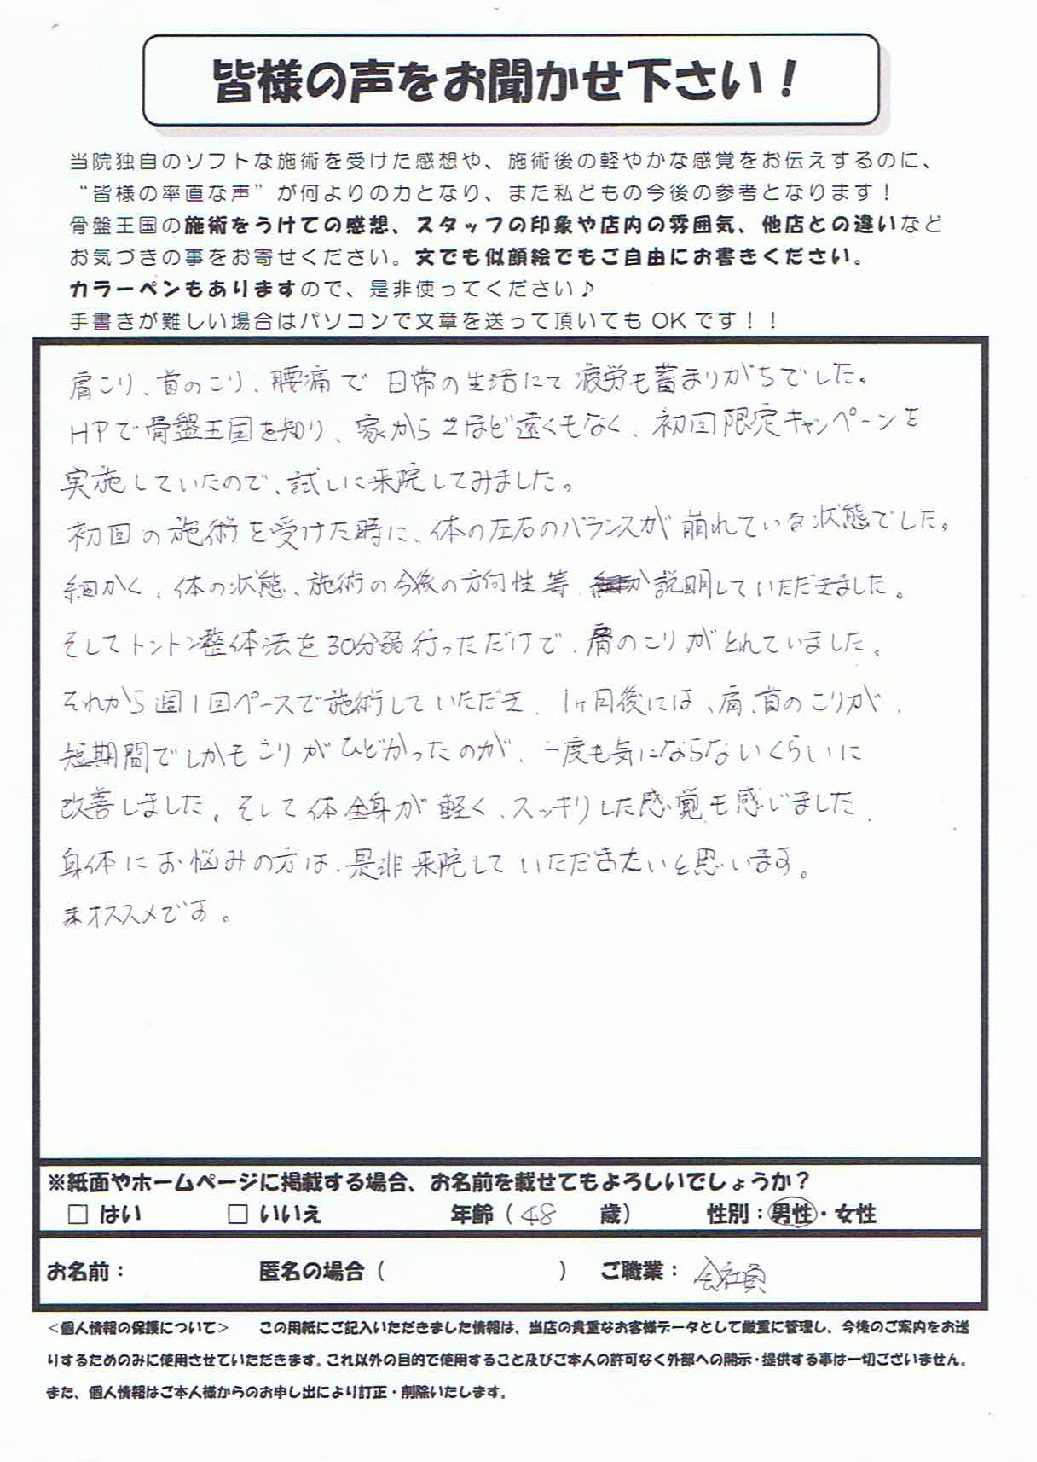 皆様の声をお聞かせ下さい！
当院独自のソフトな施術を受けた感想や、施術後の軽やかな感覚をお伝えするのに、
“皆様の率直な声”が何よりの力となり、また私どもの今後の参考となります！
骨盤王国の施術をうけての感想、スタッフの印象や店内の雰囲気、他店との違いなど
お気づきの事をお寄せください。文でも似顔絵でもご自由にお書きください。
カラーペンもありますので、是非使ってください♪
手書きが難しい場合はパソコンで文章を送って頂いてもOKです！！
肩こり、首のこり、腰痛で日常の生活にて疲労も蓄まりがちでした。
HPで骨盤王国を知り、家からさほど遠くもなく、初回限定キャンペーンを
実施していたので、試しに来院してみました。
初回の施術を受けた時に、体の左右のバランスが崩れている状態でした。
細かく、体の状態、施術の今後の方向性等、説明していただきました。
そしてトントン整体法を30分弱行っただけで、肩のこりがとれていました。
それから週1回ペースで施術していただき、1ヶ月後には、肩、首のこりが、
短期間でしかもこりがひどかったのが、一度も気にならないくらいに
改善しました。そして体全身が軽く、スッキリした感覚も感じました。
身体にお悩みの方は、是非来院していただきたいと思います。
オススメです。
※紙面やホームページに掲載する場合、お名前を載せてもよろしいでしょうか？
□ はい □ いいえ 年齢（48 歳） 性別：男性・女性
お名前： 匿名の場合（ ） ご職業：会社員
＜個人情報の保護について＞ この用紙にご記入いただきました情報は、当店の貴重なお客様データとして厳重に管理し、今後のご案内をお送
りするためのみに使用させていただきます。これ以外の目的で使用すること及びご本人の許可なく外部への開示・提供する事は一切ございません。
また、個人情報はご本人様からのお申し出により訂正・削除いたします。